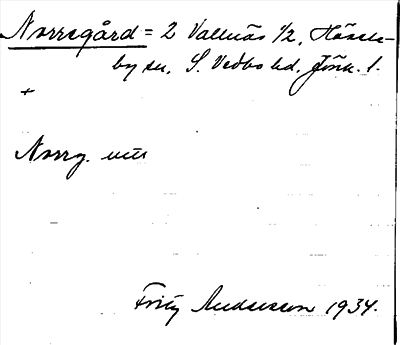 Norregård = 2 Vallnäs 1/2, Hässle-
by sn, S. Vedbo hd, Jönk. l.
+
Norrg. utr
Fritz Andersson 1934.